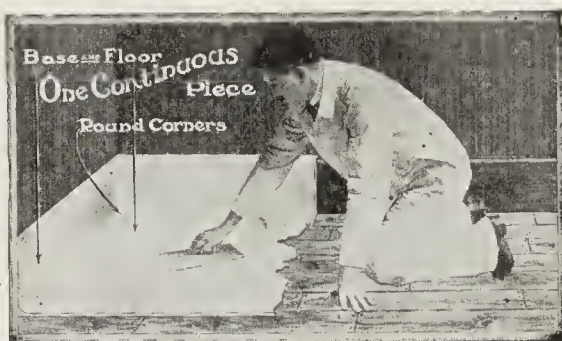 Base and Floor
One Continuous
Piece
Round Corners